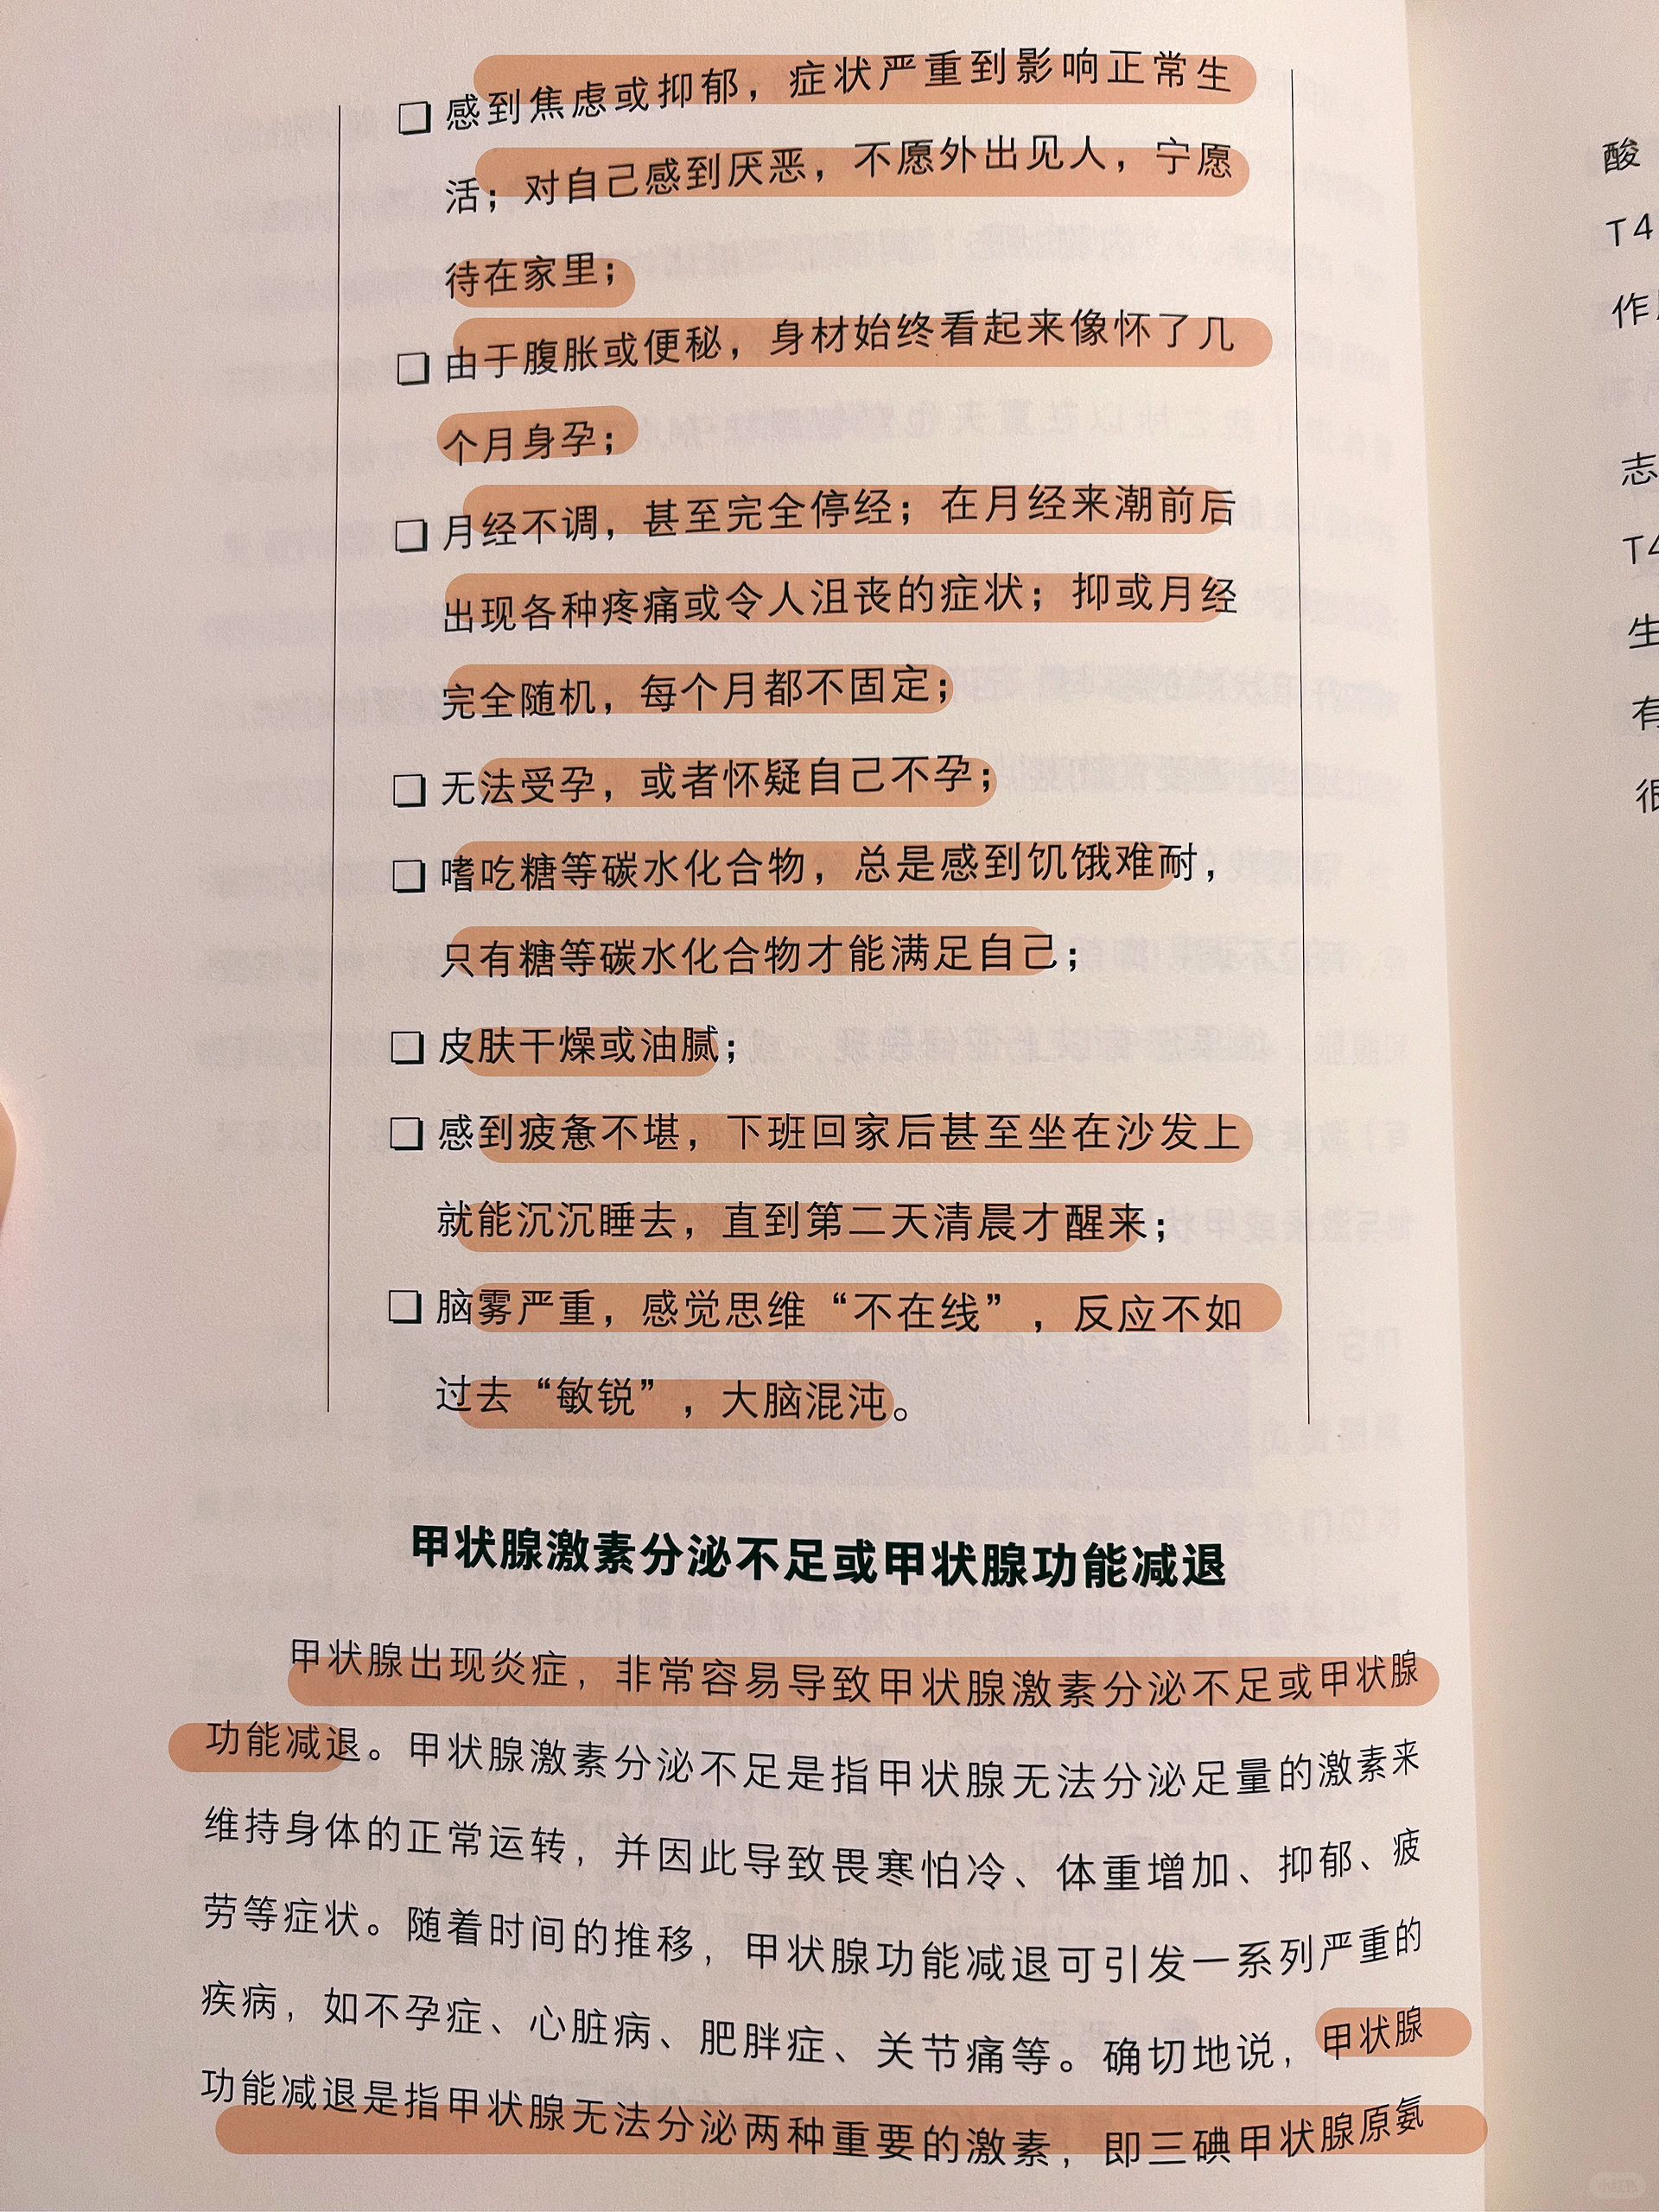 ❏ 感到焦虑或抑郁，症状严重到影响正常生
活；对自己感到厌恶，不愿外出见人，宁愿
待在家里；
❏ 由于腹胀或便秘，身材始终看起来像怀了几
个月身孕；
❏ 月经不调，甚至完全停经；在月经来潮前后
出现各种疼痛或令人沮丧的症状；抑或月经
完全随机，每个月都不固定；
❏ 无法受孕，或者怀疑自己不孕；
❏ 嗜吃糖等碳水化合物，总是感到饥饿难耐，
只有糖等碳水化合物才能满足自己；
❏ 皮肤干燥或油腻；
❏ 感到疲惫不堪，下班回家后甚至坐在沙发上
就能沉沉睡去，直到第二天清晨才醒来；
❏ 脑雾严重，感觉思维“不在线”，反应不如
过去“敏锐”，大脑混沌。
甲状腺激素分泌不足或甲状腺功能减退
甲状腺出现炎症，非常容易导致甲状腺激素分泌不足或甲状腺
功能减退。甲状腺激素分泌不足是指甲状腺无法分泌足量的激素来
维持身体的正常运转，并因此导致畏寒怕冷、体重增加、抑郁、疲
劳等症状。随着时间的推移，甲状腺功能减退可引发一系列严重的
疾病，如不孕症、心脏病、肥胖症、关节痛等。确切地说，甲状腺
功能减退是指甲状腺无法分泌两种重要的激素，即三碘甲状腺原氨
酸
T4
作
志
T4
生
有
很